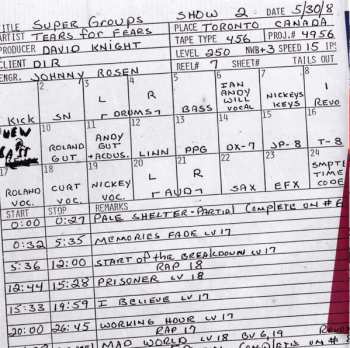 TITLE SUPER GROUPS SHOW 2 DATE 5/30/8
ARTIST TEARS FOR FEARS PLACE TORONTO CANADA
PRODUCER DAVID KNIGHT TAPE TYPE 456 PROJ.# 4956
CLIENT DIR LEVEL 250 NWB+3 SPEED 15 IPS
ENGR. JOHNNY ROSEN REEL# 7 SHEET# TAILS OUT
2 3 4 5 6 7 8
KICK SN L R DRUMS BASS IAN ANDY WILL VOCAL NICKEYS KEYS REVO
NEW
10 11 12 13 14 15 16
ROLAND GUT ANDY GUT +ACOUS. LINN PPG OX-7 JP-8 T-8
17 18 19 20 21 22 23 24
ROLAND VOC. CURT VOC. NICKEY VOC. L R AUD SAX EFX SMPTE TIME CODE
START STOP REMARKS
0:00 0:27 PALE SHELTER-PARTIAL COMPLETE ON # 6
0:32 5:35 MEMORIES FADE LV 17
5:36 12:00 START OF THE BREAKDOWN LV 17
RAP 18
12:44 15:28 PRISONER LV 18
15:33 19:59 I BELIEVE LV 17
20:00 26:45 WORKING HOUR LV 17
RAP 17
MAD WORLD LV 18 BV 6,19